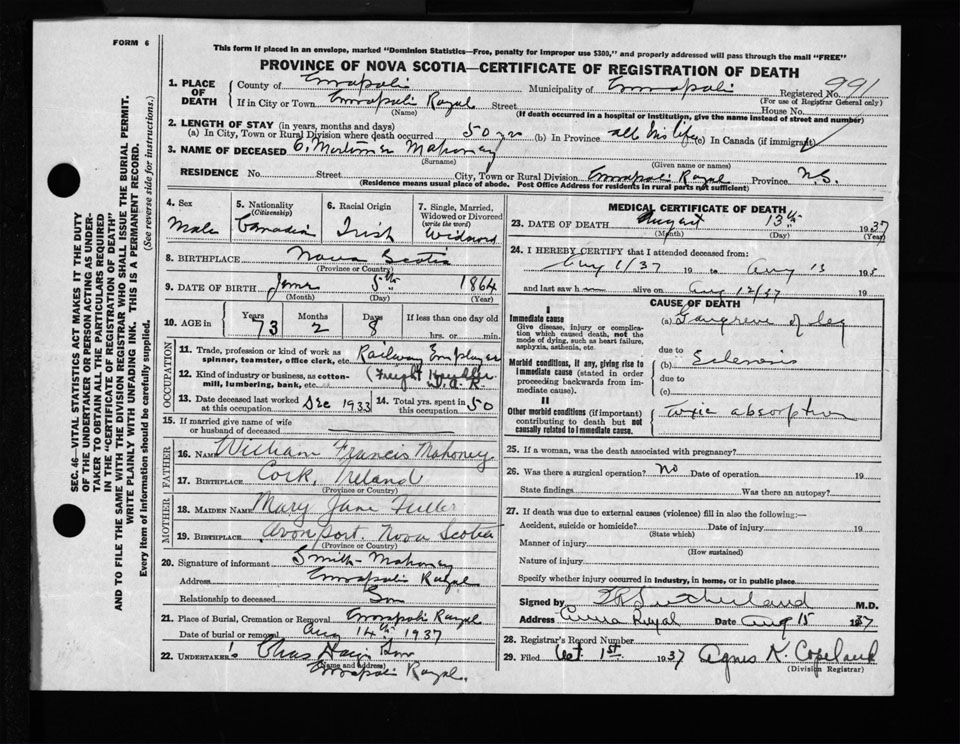 FORM 6
This form if placed in an envelope, marked "Dominion Statistics—Free, penalty for improper use $300," and properly addressed will pass through the mail "FREE"
PROVINCE OF NOVA SCOTIA—CERTIFICATE OF REGISTRATION OF DEATH
991
1. PLACE OF DEATH
County of Annapolis Municipality of Annapolis Registered No.
(For use of Registrar General only)
If in City or Town Annapolis Royal Street House No.
(Name) (If death occurred in a hospital or institution, give the name instead of street and number)
2. LENGTH OF STAY (in years, months and days)
(a) In City, Town or Rural Division where death occurred 50 yrs (b) In Province all his life (c) In Canada (if immigrant)
3. NAME OF DECEASED C. Mortimer Mahoney
(Surname) (Given name or names)
RESIDENCE No. Street City, Town or Rural Division Annapolis Royal Province N.S.
(Residence means usual place of abode. Post Office Address for residents in rural parts not sufficient)
4. Sex
Male
5. Nationality
(Citizenship)
Canadian
6. Racial Origin
Irish
7. Single, Married, Widowed or Divorced
(write the word)
Widowed
8. BIRTHPLACE Nova Scotia
(Province or Country)
9. DATE OF BIRTH June 5th 1864
(Month) (Day) (Year)
10. AGE in
Years Months Days If less than one day old
73 2 8 hrs. or min.
OCCUPATION
11. Trade, profession or kind of work as spinner, teamster, office clerk, etc. Railway Employee
12. Kind of industry or business, as cotton-mill, lumbering, bank, etc. (Freight Handler D.A.R.
13. Date deceased last worked at this occupation Dec 1933
14. Total yrs. spent in this occupation 50
15. If married give name of wife or husband of deceased
FATHER
16. NAME William Francis Mahoney
17. BIRTHPLACE Cork, Ireland
(Province or Country)
MOTHER
18. MAIDEN NAME Mary Jane Fuller
19. BIRTHPLACE Avonport. Nova Scotia
(Province or Country)
20. Signature of informant Smith Mahoney
Address Annapolis Royal
Relationship to deceased Son
21. Place of Burial, Cremation or Removal Annapolis Royal
Date of burial or removal Aug 14th 1937
22. UNDERTAKER's Chas
(Name and address)
Annapolis Royal.
MEDICAL CERTIFICATE OF DEATH
23. DATE OF DEATH August 13th 1937
(Month) (Day) (Year)
24. I HEREBY CERTIFY that I attended deceased from:
Aug 1/37 19 to Aug 13 193
and last saw h im alive on Aug 12/37 19
CAUSE OF DEATH
I
Immediate cause
Give disease, injury or complication which caused death, not the mode of dying, such as heart failure, asphyxia, asthenia, etc.
(a) Gangrene of leg
due to
Morbid conditions, if any, giving rise to immediate cause (stated in order proceeding backwards from immediate cause).
(b) Sclerosis
due to
(c)
II
Other morbid conditions (if important) contributing to death but not causally related to immediate cause.
Toxic absorption
25. If a woman, was the death associated with pregnancy?
26. Was there a surgical operation? No Date of operation 19
State findings Was there an autopsy?
27. If death was due to external causes (violence) fill in also the following:—
Accident, suicide or homicide? Date of injury 19
(State which)
Manner of injury
(How sustained)
Nature of injury
Specify whether injury occurred in industry, in home, or in public place
Signed by Sutherland M.D.
Address Anna Royal Date Aug 15 1937
28. Registrar's Record Number
29. Filed Oct 1st 1937 Agnes K. Copeland
(Division Registrar)
SEC. 46—VITAL STATISTICS ACT MAKES IT THE DUTY
OF THE UNDERTAKER OR PERSON ACTING AS UNDER-
TAKER TO OBTAIN ALL THE PARTICULARS REQUIRED
IN THE "CERTIFICATE OF REGISTRATION OF DEATH"
AND TO FILE THE SAME WITH THE DIVISION REGISTRAR WHO SHALL ISSUE THE BURIAL PERMIT.
WRITE PLAINLY WITH UNFADING INK. THIS IS A PERMANENT RECORD.
Every item of information should be carefully supplied. (See reverse side for instructions.)